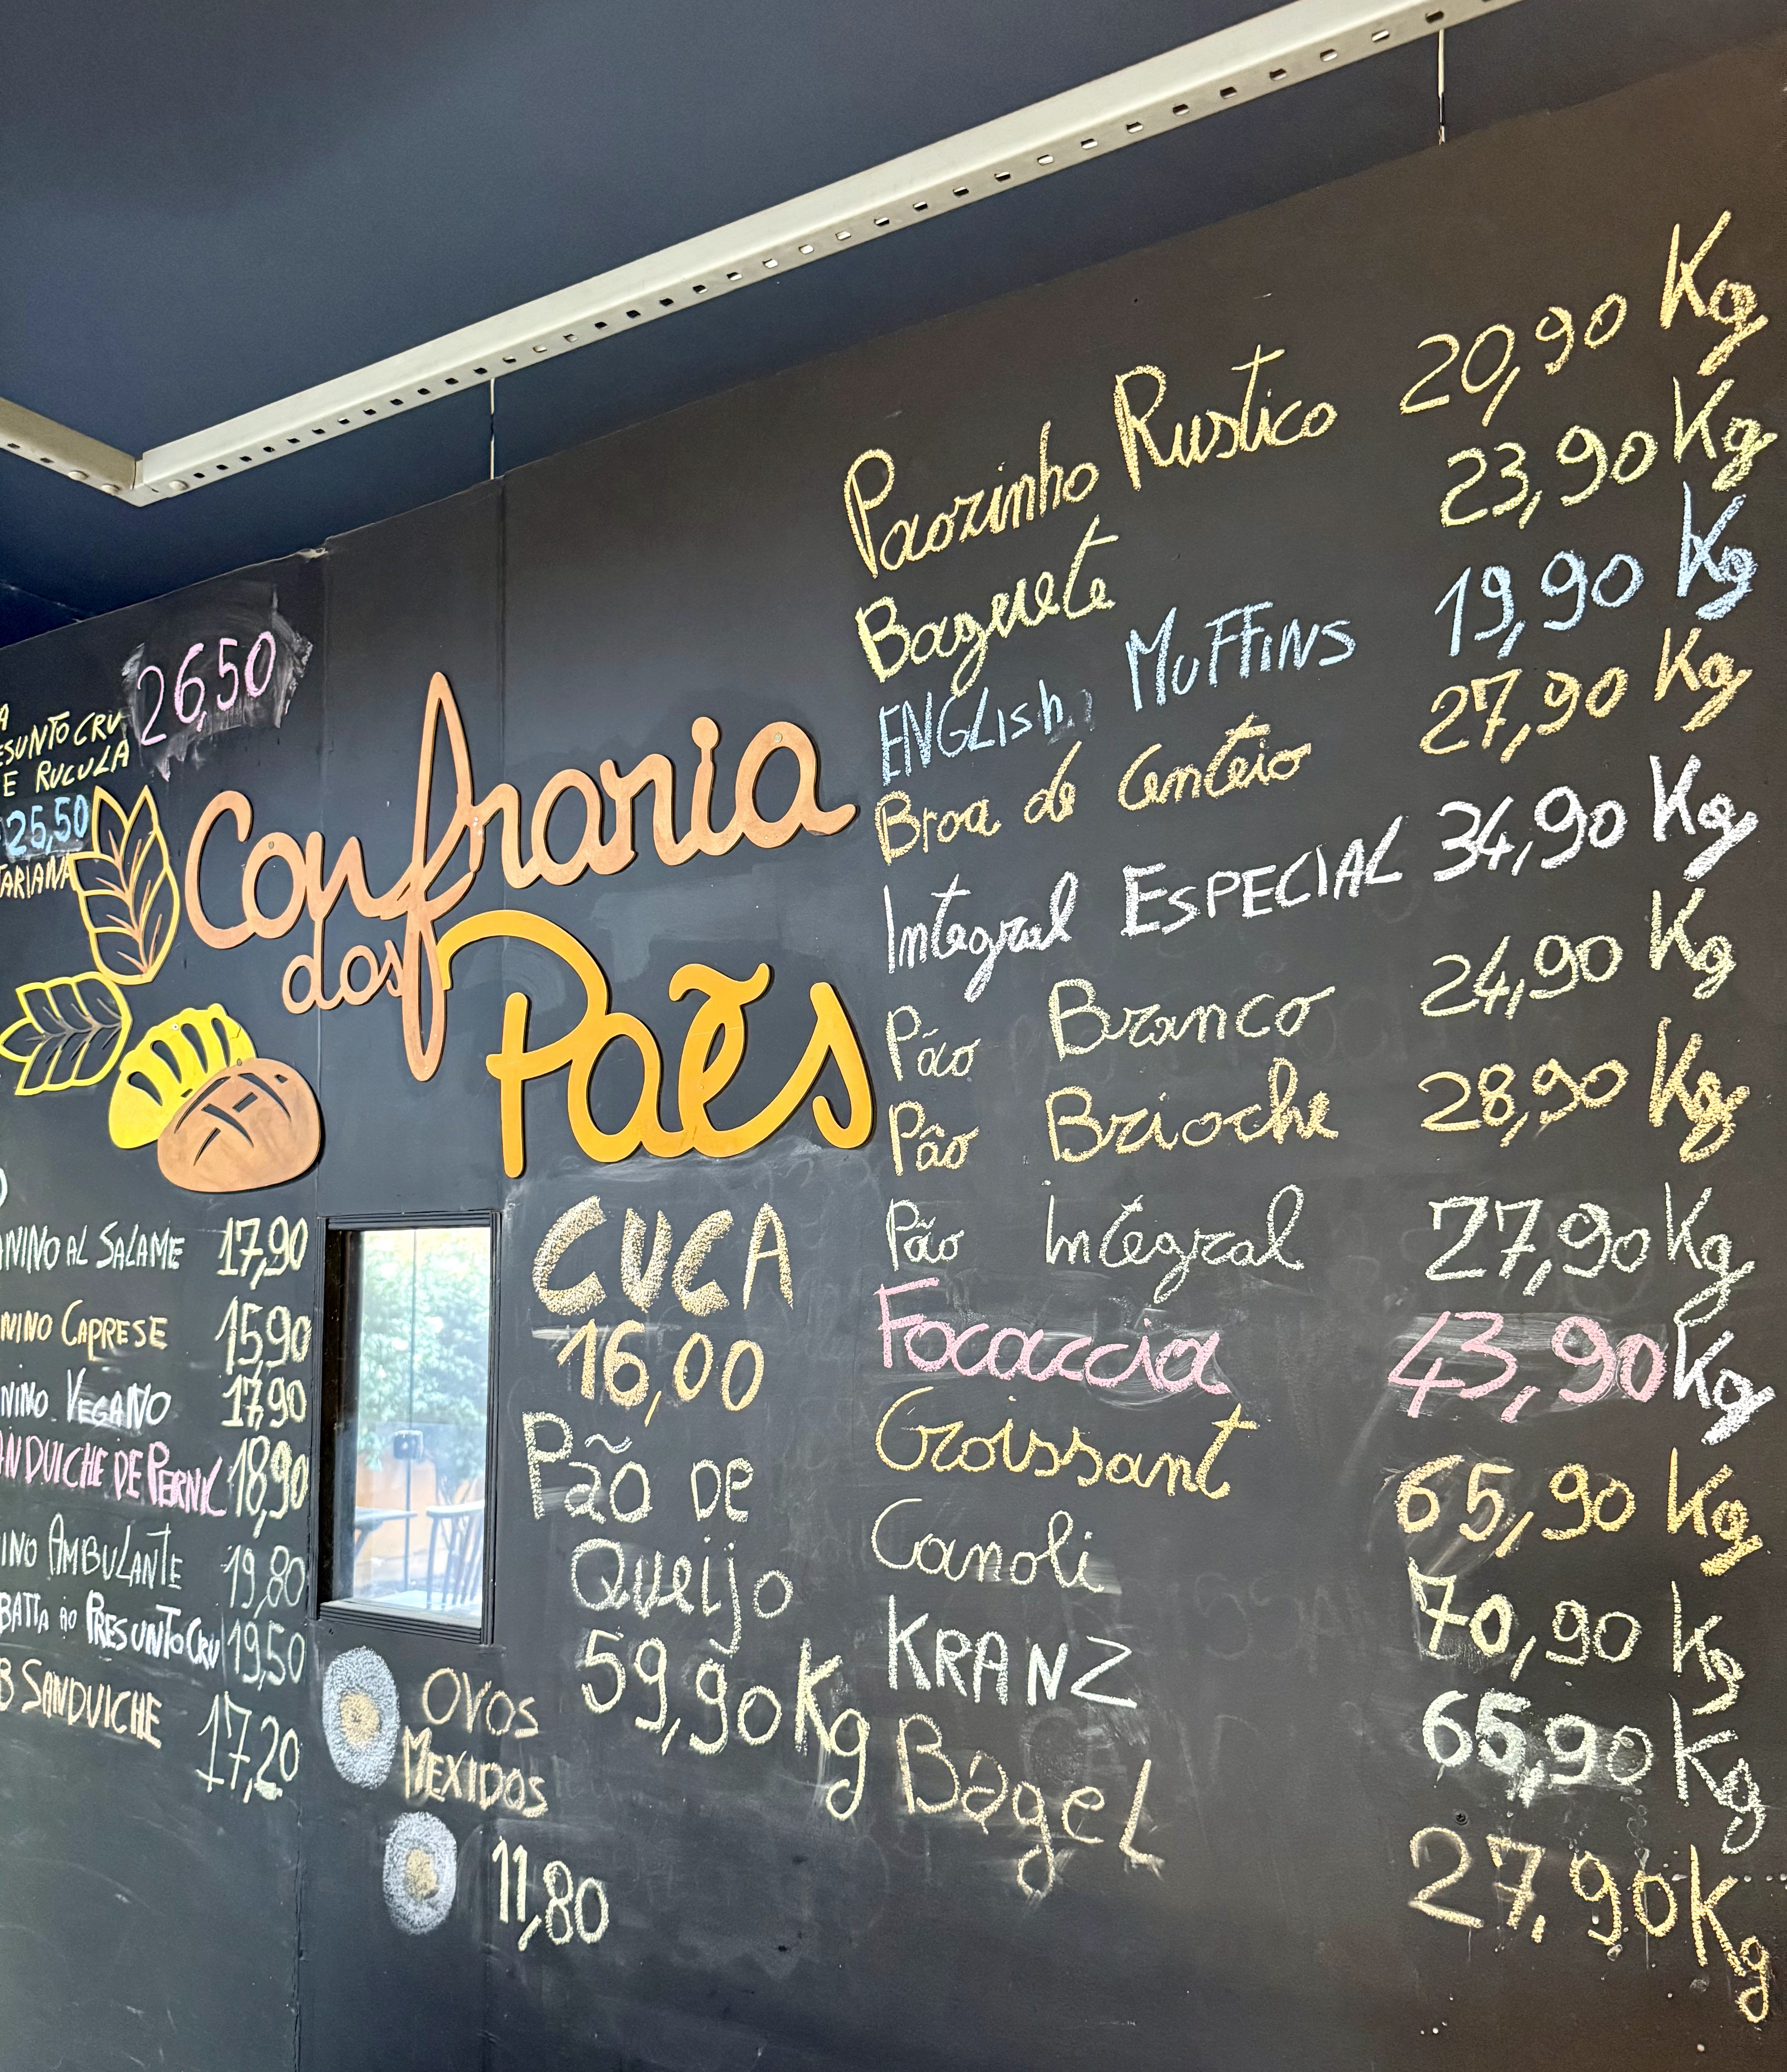 26,50
ESUNTO CRU
E RUCULA
25,50
TARIANA
Confraria
dos
Paẽs
ANINO AL SALAME 17,90
NINO CAPRESE 15,90
NINO VEGANO 17,90
ANDUICHE DE PERNIL 18,90
INO AMBULANTE 19,80
BATTA AO PRESUNTO CRU 19,50
B SANDUICHE 17,20
OVOS
MEXIDOS
11,80
CUCA
16,00
Pão DE
Queijo
59,90 Kg
Paozinho Rustico 20,90 Kg
Baguete 23,90 Kg
ENGLish MUFFiNS 19,90 Kg
Broa de Centeio 27,90 Kg
Integral ESPECIAL 34,90 Kg
Pão Branco 24,90 Kg
Pão Brioche 28,90 Kg
Pão Integral 27,90 Kg
Focaccia 43,90 Kg
Croissant 65,90 Kg
Canoli 70,90 Kg
KRANZ 65,90 Kg
Bagel 27,90 Kg